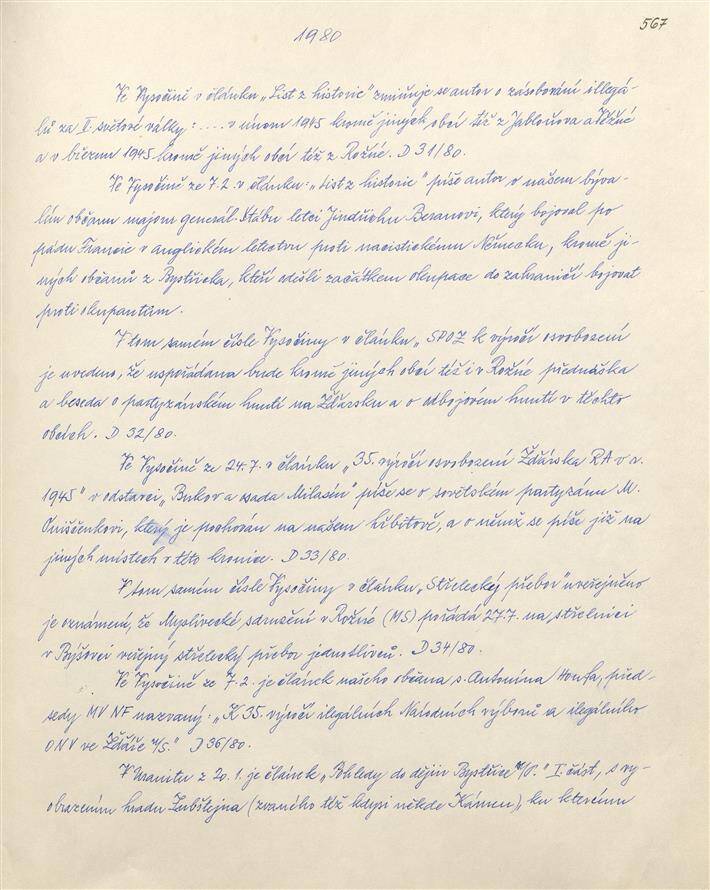 567
1980
Ve Vysočině v článku „List z historie" zmiňuje se autor o zásobování illegá-
lů za II. světové války: .... v únoru 1945 kromě jiných obcí též z Jablonova a Věžné
a v březnu 1945 kromě jiných obcí též z Rožné. D 31/80.
Ve Vysočině ze 7.2. v článku: „List z historie" píše autor o našem býva-
lém občanu majoru generál. štábu letci Jindřichu Beranovi, který bojoval po
pádu Francie v anglickém letectvu proti nacistickému Německu, kromě ji-
ných občanů z Bystřicka, kteří odešli začátkem okupace do zahraničí bojovat
proti okupantům.
V tom samém čísle Vysočiny v článku „SPOZ k výročí osvobození
je uvedeno, že uspořádána bude kromě jiných obcí též i v Rožné přednáška
a beseda o partyzánském hnutí na Žďársku a o odbojovém hnutí v těchto
obcích. D 32/80.
Ve Vysočině ze 24.7. v článku „35. výročí osvobození Žďárska RA v r.
1945" v odstavci „Bukov a osada Milasín" píše se o sovětském partyzánu M.
Oniščenkovi, který je pochován na našem hřbitově, a o němž se píše již na
jiných místech v této kronice. D 33/80.
V tom samém čísle Vysočiny v článku „Střelecký přebor" uveřejněno
je oznámení, že Myslivecké sdružení v Rožné (MS) pořádá 27.7. na střelnici
v Býšovci veřejný střelecký přebor jednotlivců. D 34/80.
Ve Vysočině ze 7.2. je článek našeho občana s. Antonína Honfa, před-
sedy MV NF nazvaný: „K 35. výročí ilegálních Národních výborů a ilegálního
ONV ve Žďáře n/S." D 36/80.
V Uranitu z 20.1. je článek „Pohledy do dějin Bystřice n/P." I. část, s vy-
obrazením hradu Zubštejna (zvaného též kdysi někde Kámen), ku kterému